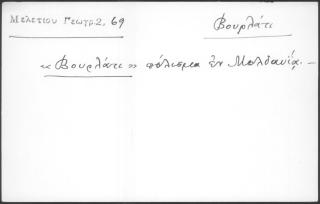 Μελετίου Γεωγρ. 2, 69
Βουρλάτι
« Βουρλάτι » πόλισμα ἐν Μολδαυίᾳ. –